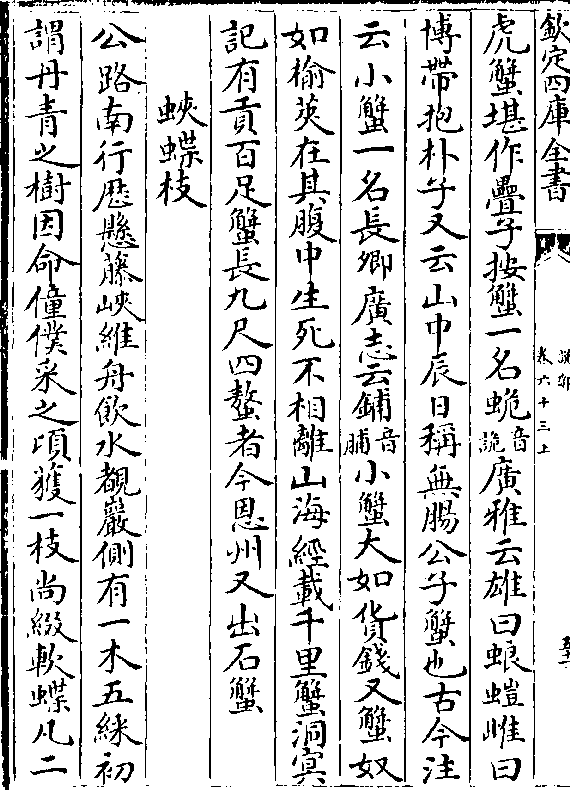 欽定四庫全書
說郛
卷六十三上
虎蟹堪作疊子按蟹一名蛫音詭廣雅云雄曰蜋螘雌曰
博帶抱朴子又云山中辰日稱無腸公子蟹也古今注
云小蟹一名長卿廣志云鋪音脯小蟹大如貨錢又蟹奴
如榆莢在其腹中生死不相離山海經載千里蟹洞冥
記有貢百足蟹長九尺四螯者今恩州又出石蟹
蛺蝶枝
公路南行歷懸藤峽維舟飲水覩巖側有一木五綵初
謂丹青之樹因命僮僕采之頃獲一枝尚綴軟蝶凡二